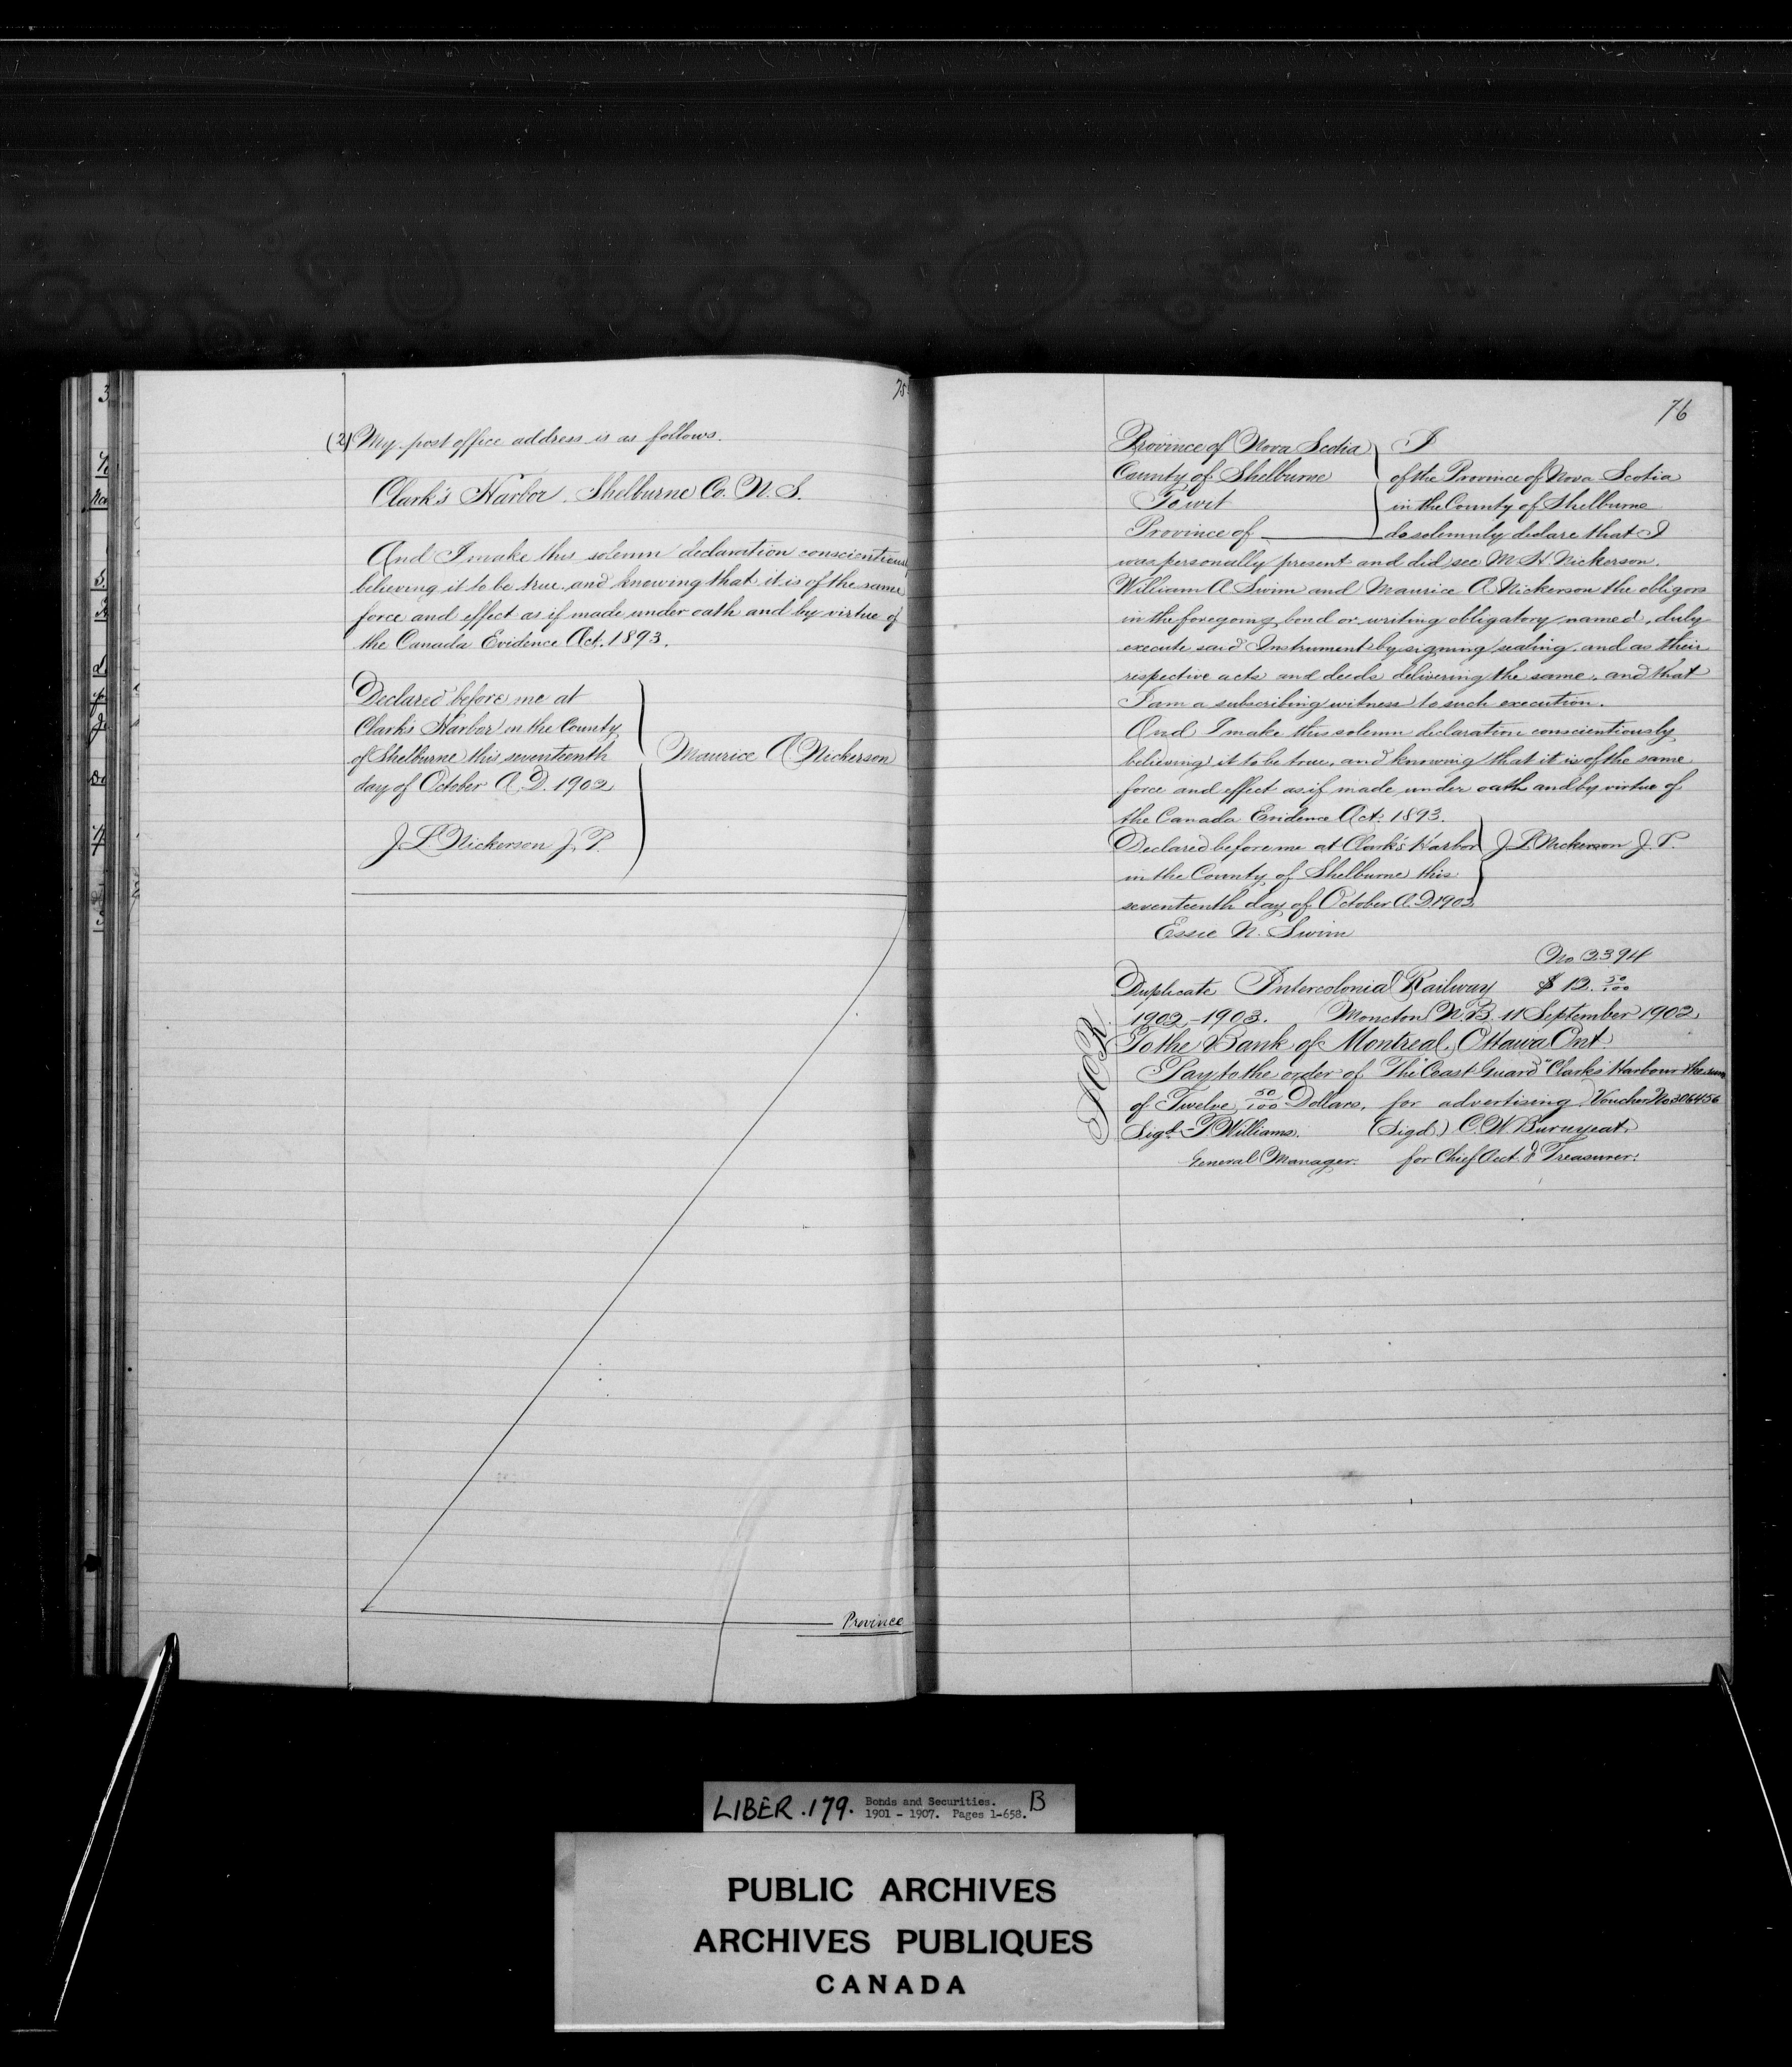 75
(2) My post office address is as follows.
Clark's Harbor. Shelburne Co. N. S.
And I make this solemn declaration conscientiously
believing it to be true, and knowing that it is of the same
force and effect as if made under oath and by virtue of
the Canada Evidence Act. 1893.
Declared before me at
Clark's Harbor in the County
of Shelburne this seventeenth
day of October A. D. 1902
Maurice A Nickerson
J. L. Nickerson J. P.
Province
76
Province of Nova Scotia
County of Shelburne
To wit
Province of
I
of the Province of Nova Scotia
in the County of Shelburne
do solemnly declare that I
was personally present and did see M. H. Nickerson.
William A Swim and Maurice A Nickerson the obligors
in the foregoing bond or writing obligatory named, duly
execute said Instrument by signing, sealing, and as their
respective acts and deeds delivering the same, and that
I am a subscribing witness to such execution.
And I make this solemn declaration conscientiously
believing it to be true, and knowing that it is of the same
force and effect as if made under oath and by virtue of
the Canada Evidence Act. 1893.
Declared before me at Clark's Harbor
in the County of Shelburne this
seventeenth day of October A.D. 1902
J. L. Nickerson J. P.
Essie N. Swim
No 2394
Duplicate Intercolonial Railway $ 12. 50/100
1902-1903. Moncton N.B. 11 September 1902
To the Bank of Montreal, Ottawa Ont.
Pay to the order of The "Coast Guard" Clark's Harbour the sum
of Twelve 50/100 Dollars, for advertising Voucher No 306456
Sigd. T. Williams. (Sigd) C. W. Burnyeat.
General Manager. for Chief Acct. & Treasurer.
LIBER .179. Bonds and Securities. B
1901 - 1907. Pages 1-658.
PUBLIC ARCHIVES
ARCHIVES PUBLIQUES
CANADA